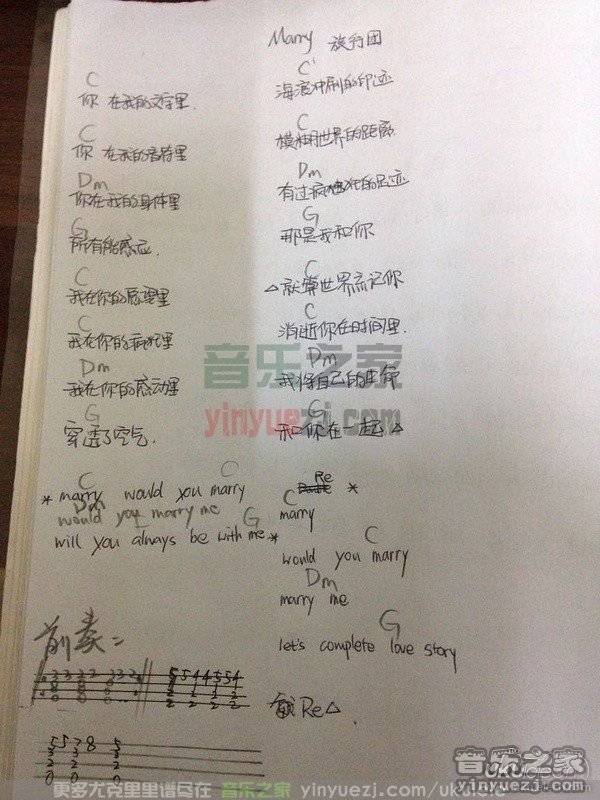 Marry 旅行团
C
你 在我的文字里
C
你 在我的音符里
Dm
你在我的身体里
G
所有的感应
C
我在你的愿望里
C
我在你的疯狂里
Dm
我在你的感动里
G
穿透了空气
C C
* marry would you marry
Dm
would you marry me
G
will you always be with me *
前奏:
3 3 2 2 3 2
5 5 4 4 5 5 4
5 5 7 8 5
C
海浪冲刷的印迹
C
世界的距离
Dm
有过疯狂的足迹
G
那是我和你
C
△就算世界忘记你
C
消逝你在时间里
Dm
我将自己的生命
G
和你在一起△
Re *
C
marry
C
would you marry
Dm
marry me
G
let's complete love story
Re△
音乐之家
yinyuezj.com
更多尤克里里谱尽在 音乐之家 yinyuezj.com/ukulele
音乐之家
yinyuezj.com